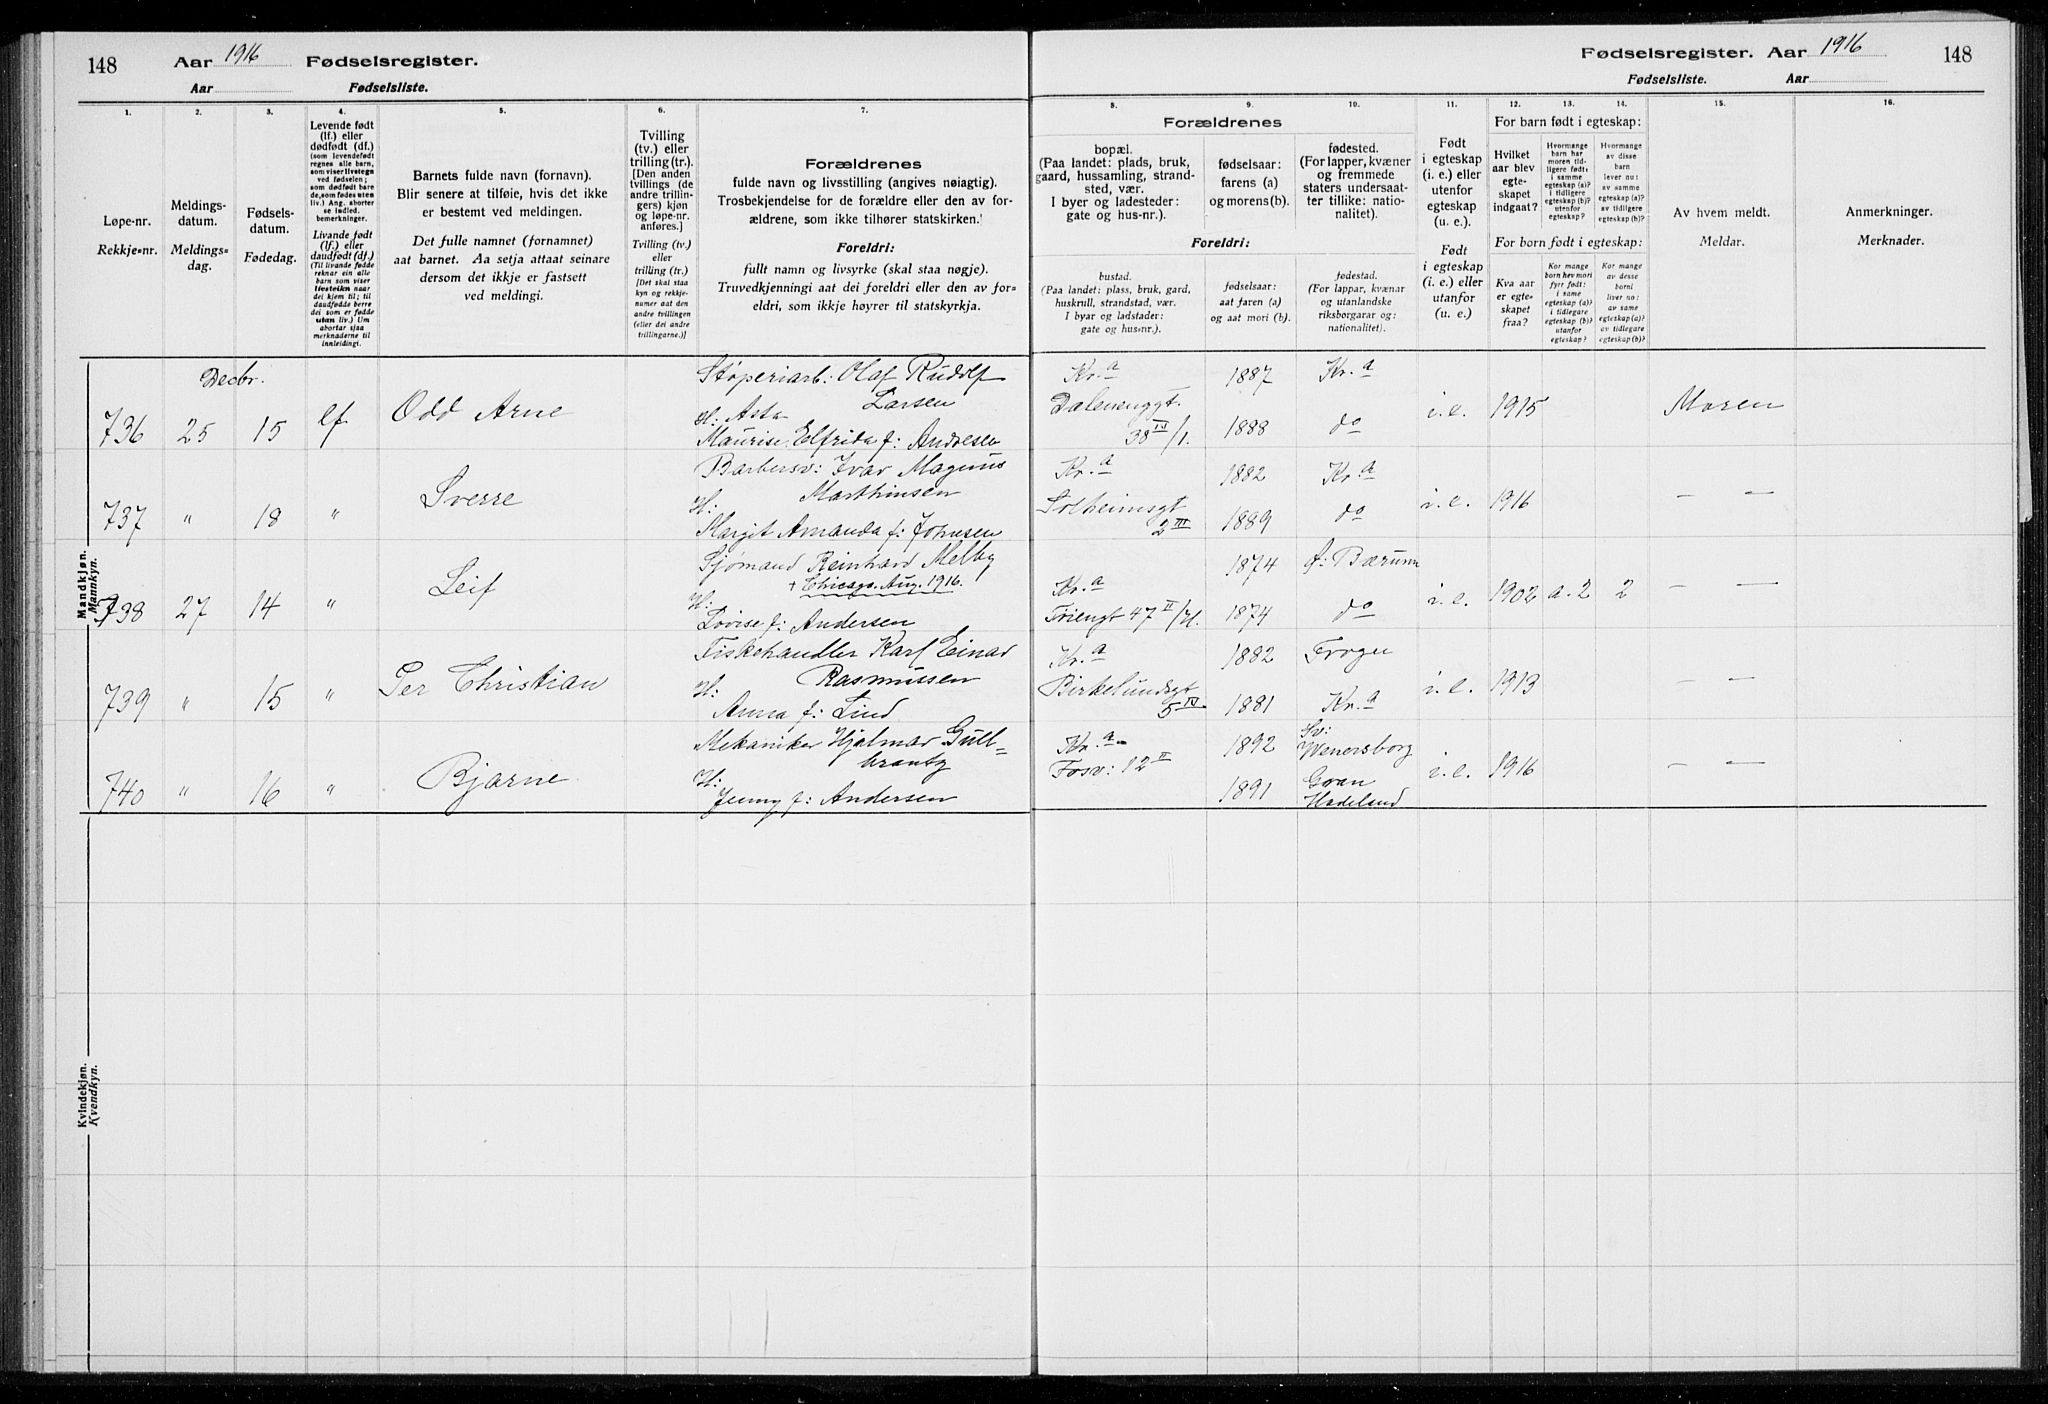 148 Aar 1916 Fødselsregister.
Aar Fødselsliste.
Fødselsregister. Aar 1916 148
Fødselsliste. Aar
1. 2. 3. 4. 5. 6. 7. 8. 9. 10. 11. 12. 13. 14. 15. 16.
Løpe-nr.
Rekkje-nr.
Meldings-
datum.
Meldings-
dag.
Fødsels-
datum.
Fødedag.
Levende født
(lf.) eller
dødfødt (df.)
(som levendefødt
regnes alle barn,
som viser livstegn
ved fødselen;
som dødfødt bare
de, som fødes uten
liv.) Ang. aborter
se indled.
bemerkninger.
Livande født
(lf.) eller
daudfødt (df.)
(Til livande fødde
reknar ein alle
barn som viser
livsteikn naar
dei kjem til; til
daudfødde berre
dei som er fødde
utan liv.) Um
abortar sjaa
merknaderne til
innleidingi.
Barnets fulde navn (fornavn).
Blir senere at tilføie, hvis det ikke
er bestemt ved meldingen.
Det fulle namnet (fornamnet)
aat barnet. Aa setja attaat seinare
dersom det ikkje er fastsett
ved meldingi.
Tvilling
(tv.) eller
trilling (tr.).
[Den anden
tvillings (de
andre trillin-
gers) kjøn
og løpe-nr.
anføres.]
Tvilling (tv.)
eller
trilling (tr.)
[Det skal staa
kyn og rekkje-
numer aat den
andre tvillingen
(eller dei andre
trillingarne.)]
Forældrenes
fulde navn og livsstilling (angives nøiagtig).
Trosbekjendelse for de forældre eller den av for-
ældrene, som ikke tilhører statskirken.
Foreldri:
fullt namn og livsyrke (skal staa nøgje).
Truvedkjenningi aat dei foreldri eller den av for-
eldri, som ikkje høyrer til statskyrkja.
Forældrenes
bopæl.
(Paa landet: plads, bruk,
gaard, hussamling, strand-
sted, vær.
I byer og ladesteder:
gate og hus-nr.).
fødselsaar:
farens (a)
og morens (b).
fødested.
(For lapper, kvæner
og fremmede
staters undersaat-
ter tillike: natio-
nalitet).
Foreldri:
bustad.
(Paa landet: plass, bruk, gard,
huskrull, strandstad, vær.
I byar og ladstader:
gate og hus-nr.).
fødselsaar:
aat faren (a)
og aat mori (b).
fødestad.
(For lappar, kvænar
og utanlandske
riksborgarar og:
nationalitet).
Født
i egteskap
(i. e.) eller
utenfor
egteskap
(u. e.).
Født
i egteskap
(i. e.) eller
utanfor
(u. e.)
For barn født i egteskap:
Hvilket
aar blev
egte-
skapet
indgaat?
Hvormange
barn har
moren tid-
ligere født:
i samme
egteskap (a)?
i tidligere
egteskap (b)?
utenfor
egteskap?
Hvormange
av disse
barn
lever nu:
av samme
egteskap (a)?
av tidligere
egteskap (b)?
For born født i egteskap:
Kva aar
er egte-
skapet
fraa?
Kor mange
born hev mori
fyrr født:
i same
egteskap (a)?
i tidlegare
egteskap (b)?
utanfor
egteskap?
Kor mange
av desse
borni
liver no:
av same
egteskap (a)?
av tidlegare
egteskap (b)?
Av hvem meldt.
Meldar.
Anmerkninger.
Merknader.
Mandkjøn.
Mannkyn.
Decbr.
736 25 15 lf Odd Arne
Støperiarb: Olaf Rudolf
Larsen
H: Asta
Maurise Elfrida f: Andresen
Kr.a 1887 Kr.a
Dælenenggt.
38 IV/1. 1888 do
i.e. 1915 Moren
737 " 18 " Sverre
Barbersv: Ivar Magnus
Marthinsen
H:
Margit Amanda f: Johnsen
Kr.a 1882 Kr.a
Solheimsgt
2 III 1889 do
i.e. 1916 — —
738 27 14 " Leif
Sjømand Reinhard Melby
+ Chicago Aug. 1916.
H:
Lovise f: Andersen
Kr.a 1874 Ø: Bærum
Triengt 47 II/H. 1874 do
i.e. 1902 a. 2 2 — —
739 " 15 " Per Christian
Fiskehandler Karl Einar
Rasmussen
H:
Anna f: Lind
Kr.a 1882 Frogn
Birkelundsgt
5 IV 1881 Kr.a
i.e. 1913 — —
740 " 16 " Bjarne
Mekaniker Hjalmar Gull-
brantz
H:
Jenny f: Andersen
Kr.a 1892 Sv: Wenersborg
Fosv: 12 II
1891 Gran
Hadeland
i.e. 1916 — —
Kvindekjøn.
Kvendkyn.